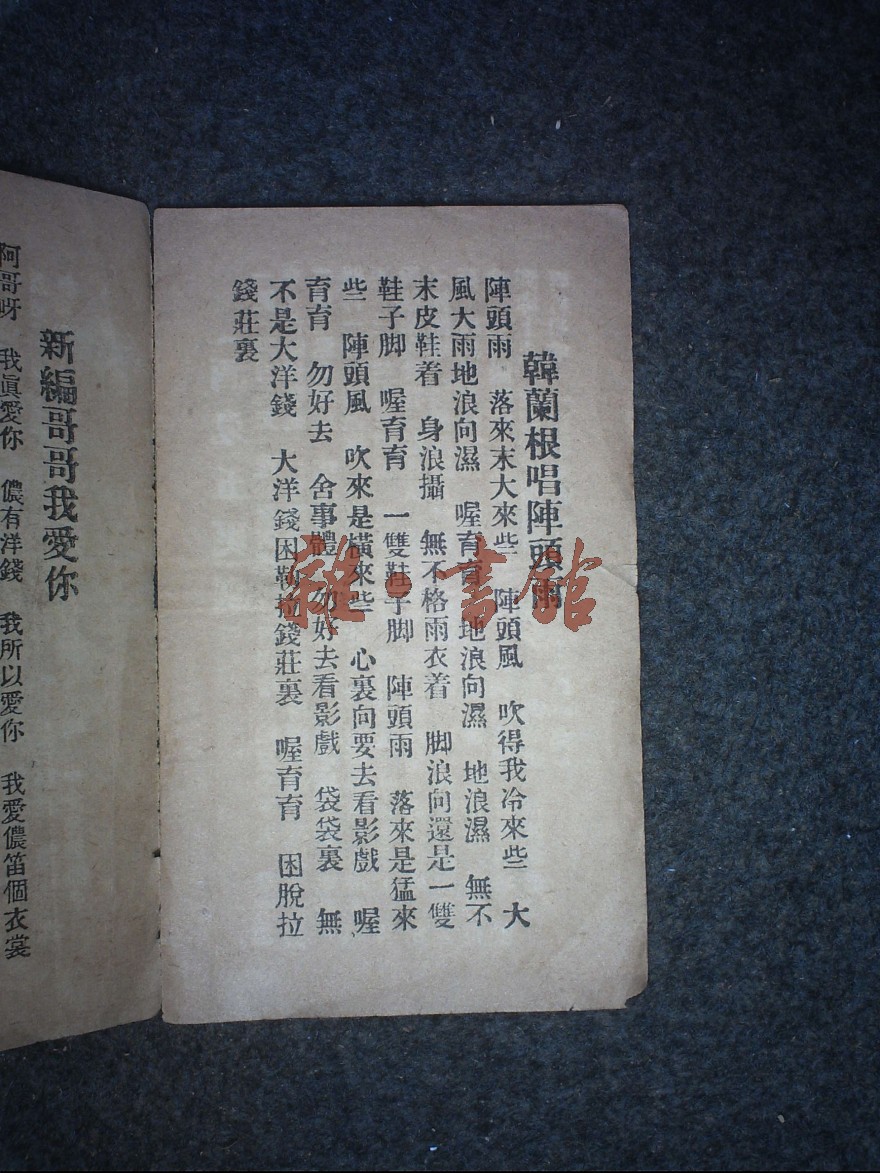 韓蘭根唱陣頭雨
陣頭雨　落來末大來些　陣頭風　吹得我冷來些　大
風大雨地浪向濕　喔育育　地浪向濕　地浪濕　無不
末皮鞋着　身浪攝　無不格雨衣着　脚浪向還是一雙
鞋子脚　喔育育　一雙鞋子脚　陣頭雨　落來是猛來
些　陣頭風　吹來是橫來些　心裏向要去看影戲　喔
育育　勿好去　舍事體　勿好去看影戲　袋袋裏　無
不是大洋錢　大洋錢困勒拉錢莊裏　喔育育　困脫拉
錢莊裏
新編哥哥我愛你
阿哥呀　我眞愛你　儂有洋錢　我所以愛你　我愛儂笛個衣裳
雜·書館